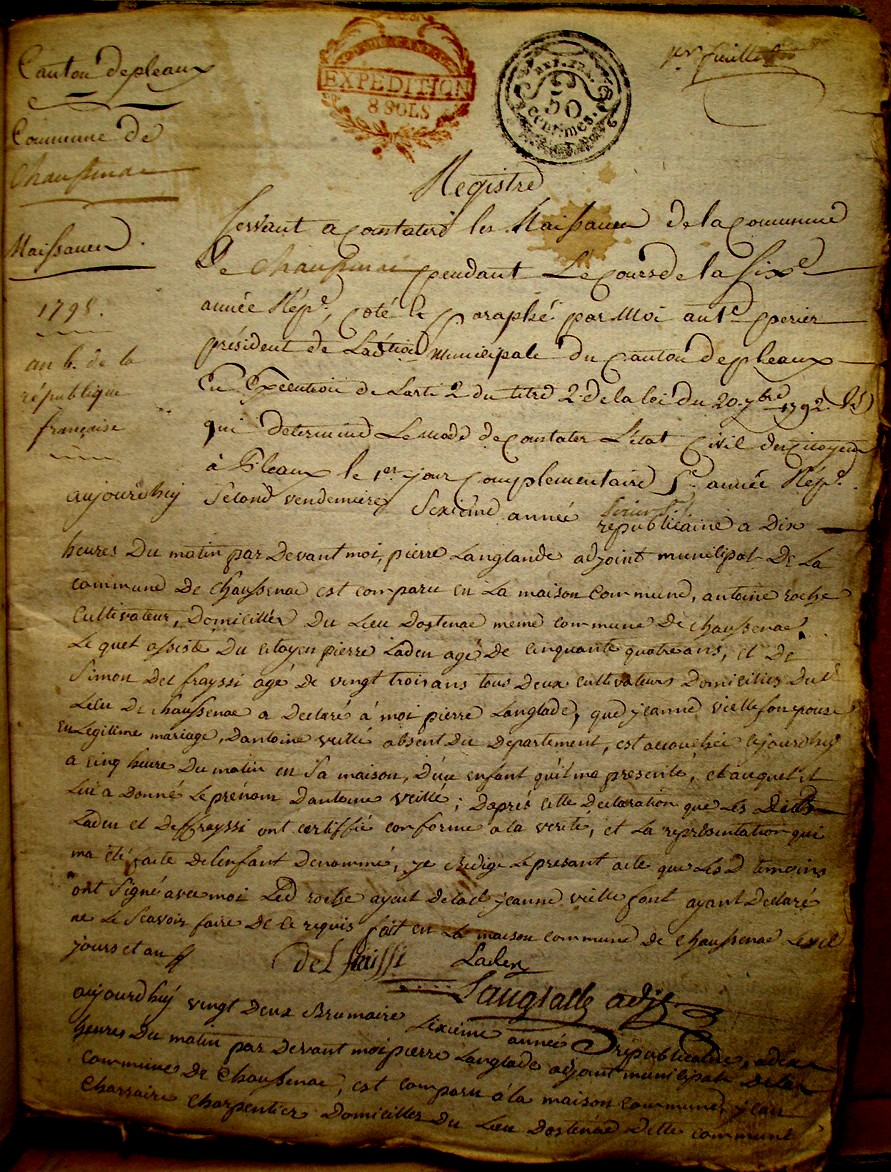 Canton de pleaux
Commune de
Chaussenac
Naissances.
1798.
an 6. de la
république
française
EXPÉDITION
8 SOLS
REP. FRA.
50
centimes.
1er feuillet
Registre
servant a constater les Naissances de la Commune
De Chaussenac pendant Le Cours de la Six.e
année Rép.e, coté & paraphé par Moi ant.e perier
président de L'ad.tion Municipale du Canton de pleaux
En Execution de Larti 2 du titre 2. de la loi du 20. 7bre 1792
qui determine Le mode de constater L'état Civil des citoyens
à Pleaux le 1er jour Complementaire 5.e année Rép.e
aujourdhuy Second vendemiere Sixième année républicaine a Dix
heures Du matin par Devant moi, pierre Langlande adjoint municipal De La
commune De chaussenac est comparu en La maison Commune, antoine roche
Cultivateur, Domicillié Du Lieu Dostenac meme commune De chaussenac
Le quel assisté Du citoyen pierre Laden agé De Cinquante quatre ans, et De
Simon Def frayssi agé De vingt trois ans tous Deux cultivateurs Domiciliés Dud.
Lieu De chaussenac a Declaré à moi pierre Langlade, que jeanne vieillefon pouse
En Legitime mariage, Dantoine veillé absent Du Departement, est accouchée aujourdhuy
a cinq heure Du matin en Sa maison, D'un enfant qu'il ma presenté, et auquel il
Lui a Donné Le prénom Dantoine veillé; Daprés Cette Declaration que Les Dits
Laden et Deffrayssi ont certiffié conforme a la verité, et La représentation qui
ma été faite De Lenfant Denommé, je redige Le presant acte que Les D temoins
ont Signé avec moi Led roche ayeul De lad jeanne vieille font ayant Declaré
ne Le Scavoir faire De Ce requis fait en La maison commune De chaussenac Les
jours et an
delfraissi Laden
Langlade adj.
aujourdhuy vingt Deux Brumaire Sixieme année républicaine, a dix
heures Du matin par Devant moi pierre Langlade adjoint municipal De La
commune De chaussenac, est comparu à la maison Commune, jean
Charraire Charpentier Domicillié Du Lieu Dostenac Dite commune